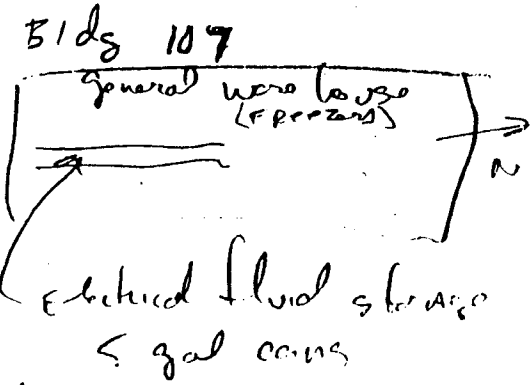 Bldg 107
General warehouse
(Freezers)
N
Electrical fluid storage
5 gal cans